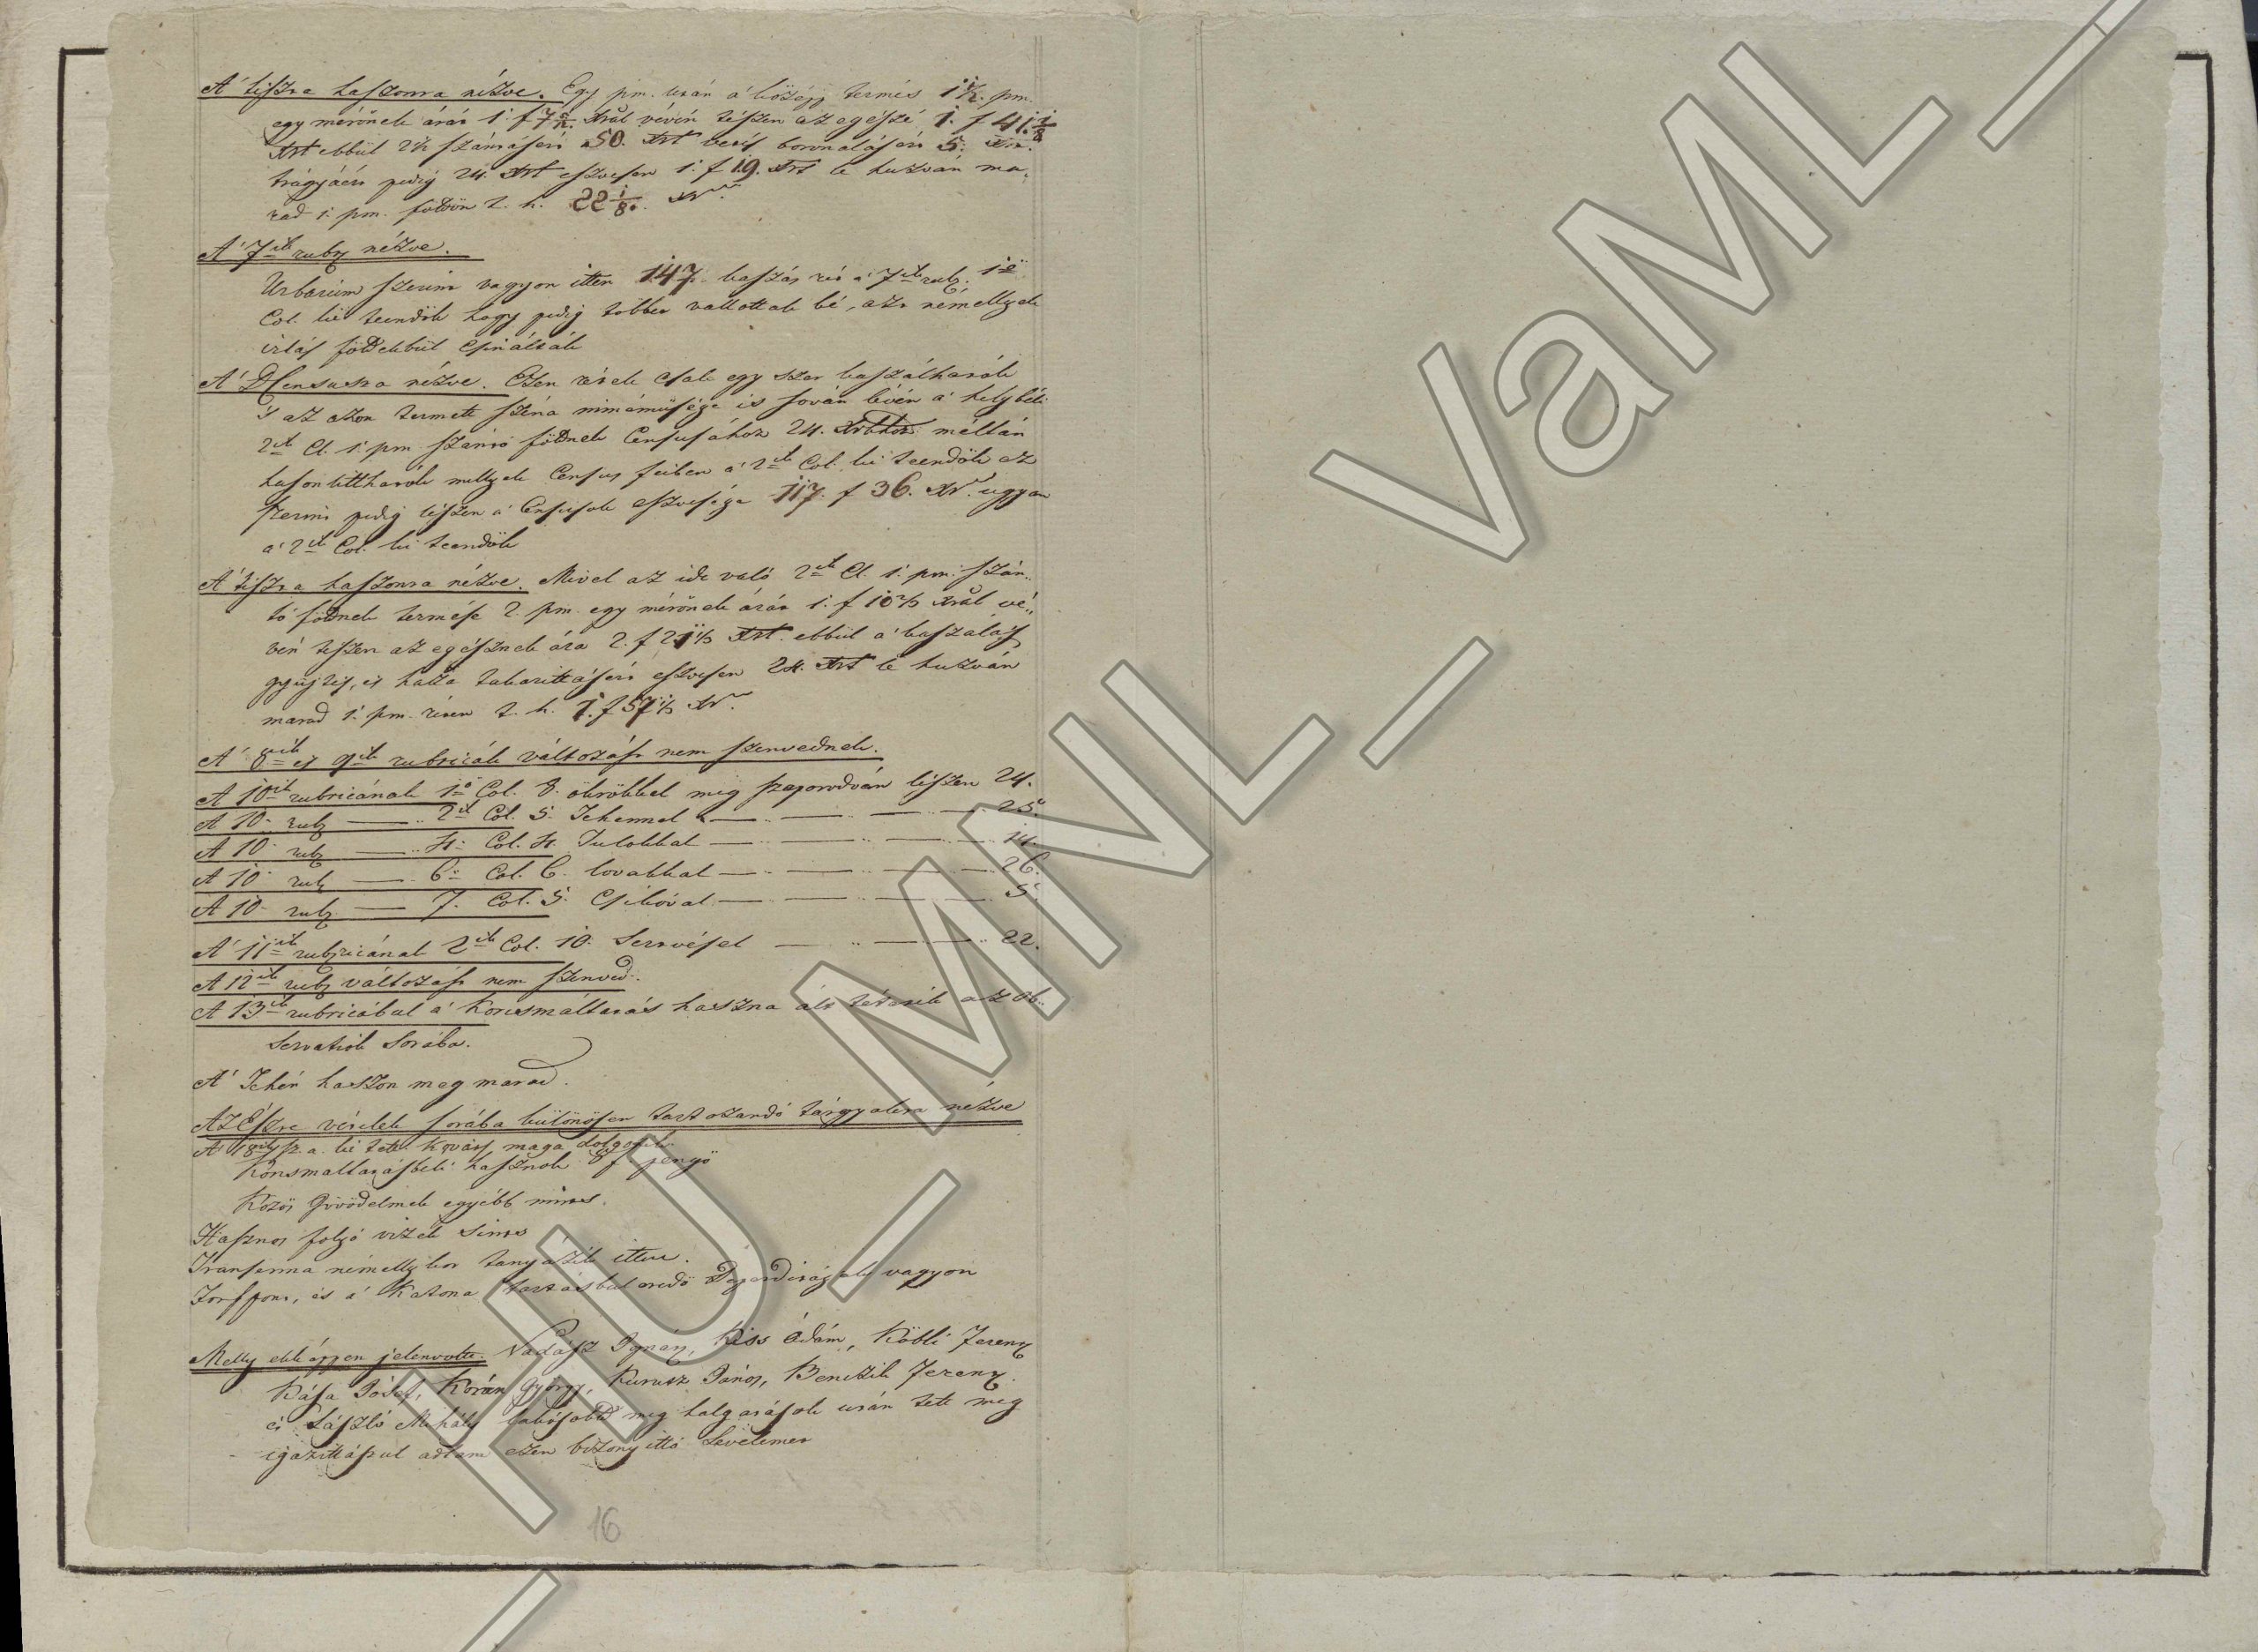 A' tiszta haszonra nézve. Egy pm. után a' közép termés 1½. pm.
egy mérőnek árát 1. f 7 Xrál vévén tészen az egészé 1. f 41 1/8
Xrt ebbül 2½ szántásért 50. Xrt vetés boronálásért 5. Xrt.
trágyáért pedig 24. Xrt eszvesen 1. f 19. Xrt le huzván ma„
rad 1. pm. földön t. h. 22 1/8. Xr
A' 7ik rubr nézve.
Urbarium szerint vagyon itten 147. kaszás rét a' 7ik rubr. 1ő
Col. ki teendők hogy pedig többet vallottak bé, azt némellyek
irtás földekbül csinálták
A' Censusra nézve. Ezen rétek csak egyszer kaszálhatók
's az azon termett széna minémüsége is sovány lévén a' helybéli
2ik Cl. 1. pm. szántó földnek Censusához 24. Xrhoz méltán
hasonlitthatók mellyek Census fejben a' 2ik Col. ki teendők az
szerint pedig tészen a' Censusok eszvesége 117. f 36. Xr. ugyan
a' 2ik Col. ki teendők
A' tiszta haszonra nézve. Mivel az ide való 2ik Cl. 1. pm. szán„
tó földnek termése 2. pm. egy mérőnek árát 1. f 10⅔ Xrál vé„
vén teszen az egésznek ára 2. f 21⅓ Xrt. ebbül a' kaszálás
gyüjtés, és haza takarittásért eszvesen 24. Xrt le huzván
marad 1. pm. réten t. h. 1. f 57⅓ Xr.
A' 8ik és 9ik rubricák változást nem szenvednek.
A' 10ik rubricának 1ő Col. 8. ökrökkel meg szaporodván lészen 24.
A 10. rubr — „ 2ik Col. 5. Tehennel — „ — „ — „ 25.
A 10. rubr — „ 4. Col. 4. Tulokkal — „ — „ — 14.
A 10. rubr — „ 6. Col. 6. lovakkal — „ — „ — 26.
A 10. rubr — 7. Col. 5. Csikóval — „ — „ — 5.
A' 11ik rubricánál 2ik Col. 10. Sertvésel — „ — „ — „ 22.
A 12ik rubr változást nem szenved.
A 13ik rubricábul a' Korcsmáltatás haszna által tétetik az Ob„
servatiók Sorába.
A' Tehén haszon meg marad.
AZ Észre vételek sorába különösen tartozandó tárgyakra nézve
A' 18ik sz. a. ki tett Kovács maga dolgozik.
Korcsmaltatásbéli hasznok 8 f pengő
Közös Jövödelmek egyébb nincs.
Hasznos folyó vizek sincs
Transenna némellykor tanyázik itten.
Forspont, és a' Katona tartásbul eredő vagyon
Melly ekképpen jelenvoltt. Vadász Ignácz, Kiss Ádám, Köbli Ferencz
Kása Jósef, Korán György, Kurucz János, Benczik Ferencz.
és László Mihály lakósokat meg halgatások után tett meg
igazittásrul adtam ezen bizonyittó Levelemet
16